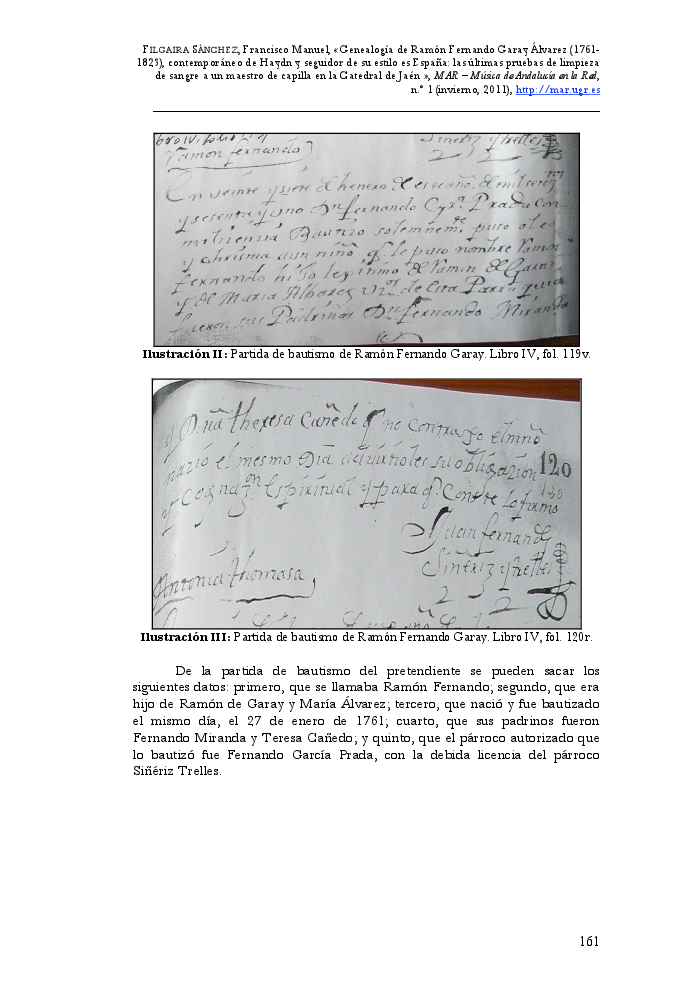 FILGAIRA SÁNCHEZ, Francisco Manuel, «Genealogía de Ramón Fernando Garay Álvarez (1761-
1823), contemporáneo de Haydn y seguidor de su estilo es España: las últimas pruebas de limpieza
de sangre a un maestro de capilla en la Catedral de Jaén », MAR – Música de Andalucía en la Red,
n.º 1 (invierno, 2011), http://mar.ugr.es
Ramon fernando
En veinte y siete de henero de este año de mil setez.tos
y sesenta y uno Dn fernando Gra Prada con
mi licencia Bautizo solemnem.te puso oleo
y chrisma a un niño q. le puso nombre Ramon
fernando hijo legitimo de Ramon de Garai
y de Maria Albarez de esta Parroquia
fueron sus Padrinos Dn fernando Miranda
Ilustración II: Partida de bautismo de Ramón Fernando Garay. Libro IV, fol. 119v.
y Dña theresa Cañedo q. no contraxo el niño
nazió el mesmo Dia su obligazion 120
y Cognaz.on Espiritual y para q. Conste lo firmo
Juan fernandz
Siñeriz y trelles
Antonia thomasa
Ilustración III: Partida de bautismo de Ramón Fernando Garay. Libro IV, fol. 120r.
De la partida de bautismo del pretendiente se pueden sacar los
siguientes datos: primero, que se llamaba Ramón Fernando; segundo, que era
hijo de Ramón de Garay y María Álvarez; tercero, que nació y fue bautizado
el mismo día, el 27 de enero de 1761; cuarto, que sus padrinos fueron
Fernando Miranda y Teresa Cañedo; y quinto, que el párroco autorizado que
lo bautizó fue Fernando García Prada, con la debida licencia del párroco
Siñériz Trelles.
161